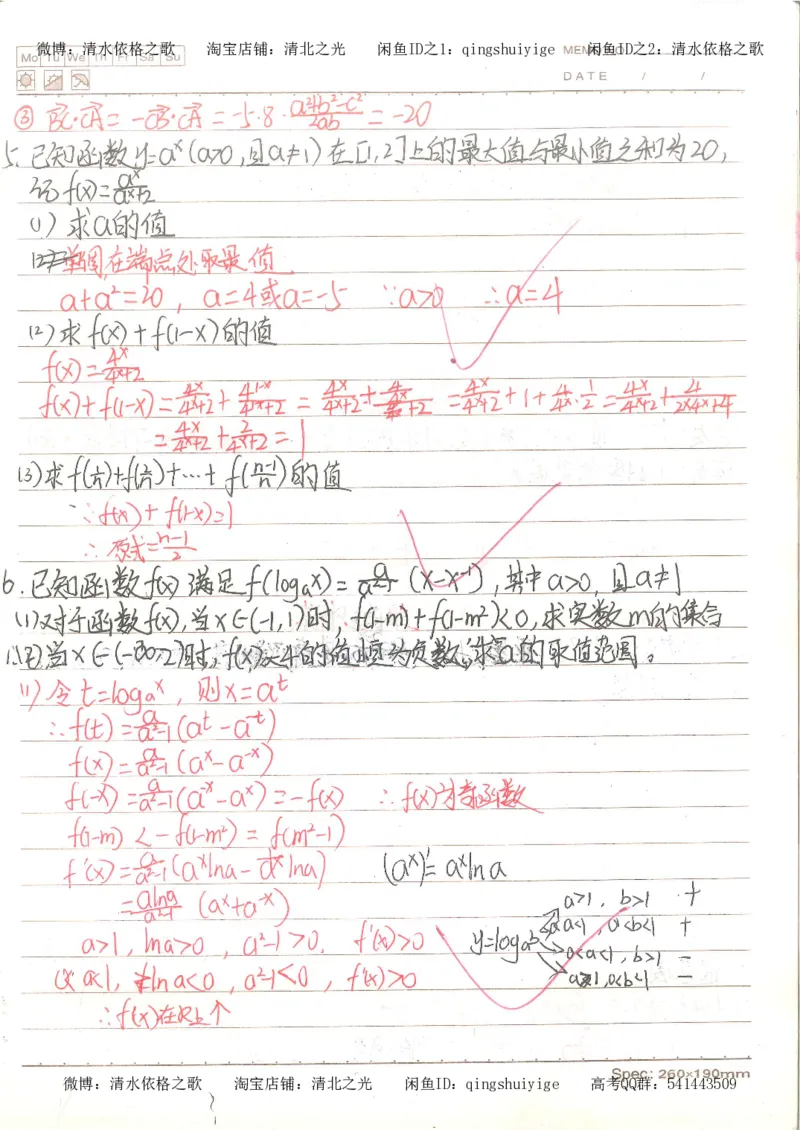 微博：清水依格之歌 淘宝店铺：清北之光 闲鱼ID之1：qingshuiyige 闲鱼ID之2：清水依格之歌
Mo Tu We Th Fr Sa Su
DATE / /
③ BC·CA = -CB·CA = -5·8·(a²+b²-c²)/2ab = -20
5. 已知函数y=aˣ(a>0,且a≠1)在[1,2]上的最大值与最小值之和为20,
记f(x)=aˣ/(aˣ+2)
(1) 求a的值
单调在端点处取最值
a+a²=20, a=4或a=-5 ∵a>0 ∴a=4
(2) 求f(x)+f(1-x)的值
f(x)=4ˣ/(4ˣ+2)
f(x)+f(1-x)=4ˣ/(4ˣ+2)+4¹⁻ˣ/(4¹⁻ˣ+2)
=4ˣ/(4ˣ+2)+2/(4ˣ+2)=1
(3)求f(1/n)+f(2/n)+…+f((n-1)/n)的值
∵f(x)+f(1-x)=1
∴原式=(n-1)/2
6. 已知函数f(x)满足f(logₐx)=a/(a²-1)(x-x⁻¹),其中a>0,且a≠1
(1)对于函数f(x),当x∈(-1,1)时,f(1-m)+f(1-m²)<0,求实数m的集合
(2)当x∈(-∞,2)时,f(x)-4的值恒为负数,求a的取值范围。
(1) 令t=logₐx, 则x=aᵗ
∴f(t)=a/(a²-1)(aᵗ-a⁻ᵗ)
f(x)=a/(a²-1)(aˣ-a⁻ˣ)
f(-x)=a/(a²-1)(a⁻ˣ-aˣ)=-f(x) ∴f(x)为奇函数
f(1-m)<-f(1-m²)=f(m²-1)
f'(x)=a/(a²-1)(aˣlna-a⁻ˣlna) (aˣ)'=aˣlna
=alna/(a²-1)(aˣ+a⁻ˣ)
a>1, b>1 +
a>1, lna>0, a²-1>0, f'(x)>0 y=logₐb a<1, 0<b<1 +
0<a<1, b>1 -
0<a<1, lna<0, a²-1<0, f'(x)>0 a>1, 0<b<1 -
∴f(x)在R上↑
Spec: 260×190mm
微博：清水依格之歌 淘宝店铺：清北之光 闲鱼ID：qingshuiyige 高考QQ群：541443509